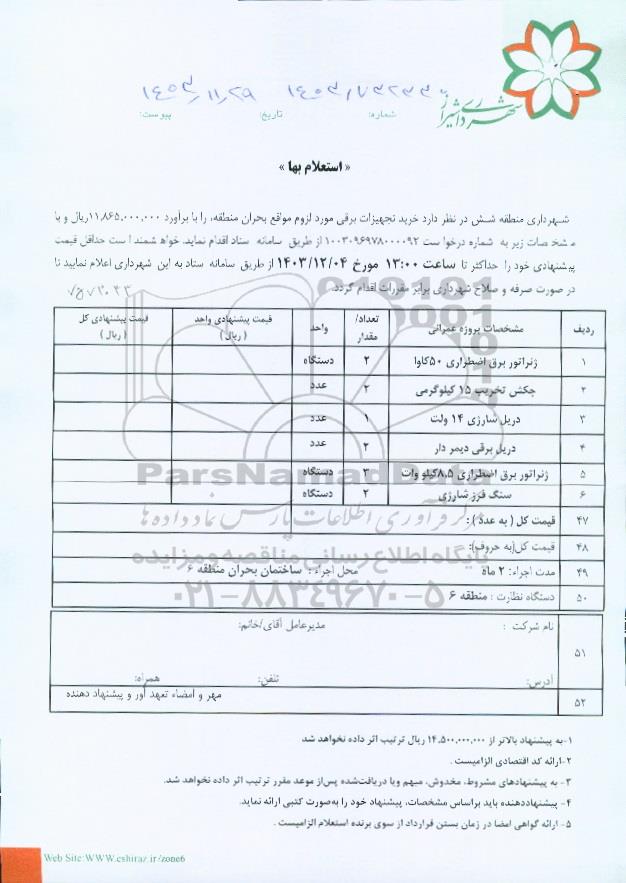 شهرداری شیراز
شماره: ۱۴۰۳/۷۳۲۳۳
تاریخ: ۱۴۰۳/۱۱/۲۹
پیوست:
« استعلام بها »
شهرداری منطقه شش در نظر دارد خرید تجهیزات برقی مورد لزوم مواقع بحران منطقه، را با برآورد ۱۱,۸۶۵,۰۰۰,۰۰۰ریال و با
مشخصات زیر به شماره درخواست ۱۰۰۳۰۹۶۹۷۸۰۰۰۰۹۲ از طریق سامانه ستاد اقدام نماید. خواهشمند است حداقل قیمت
پیشنهادی خود را حداکثر تا ساعت ۱۳:۰۰ مورخ ۱۴۰۳/۱۲/۰۴ از طریق سامانه ستاد به این شهرداری اعلام نمایید تا
در صورت صرفه و صلاح شهرداری برابر مقررات اقدام گردد.
ردیف مشخصات پروژه عمرانی تعداد/مقدار واحد قیمت پیشنهادی واحد (ریال) قیمت پیشنهادی کل (ریال)
۱ ژنراتور برق اضطراری ۵۰کاوا ۲ دستگاه
۲ چکش تخریب ۱۵ کیلوگرمی ۲ عدد
۳ دریل شارژی ۱۴ ولت ۱ عدد
۴ دریل برقی دیمر دار ۲ عدد
۵ ژنراتور برق اضطراری ۸.۵کیلو وات ۳ دستگاه
۶ سنگ فرز شارژی ۲ دستگاه
۴۷ قیمت کل ( به عدد ):
۴۸ قیمت کل(به حروف):
۴۹ مدت اجراء: ۲ ماه محل اجراء : ساختمان بحران منطقه ۶
۵۰ دستگاه نظارت : منطقه ۶
۵۱ نام شرکت : مدیرعامل آقای/خانم:
آدرس: تلفن: همراه:
۵۲ مهر و امضاء تعهد آور و پیشنهاد دهنده
۱-به پیشنهاد بالاتر از ۱۴,۵۰۰,۰۰۰,۰۰۰ ریال ترتیب اثر داده نخواهد شد
۲-ارائه کد اقتصادی الزامیست .
۳- به پیشنهادهای مشروط، مخدوش، مبهم ویا دریافت‌شده پس‌از موعد مقرر ترتیب اثر داده نخواهد شد.
۴- پیشنهاددهنده باید براساس مشخصات، پیشنهاد خود را به‌صورت کتبی ارائه نماید.
۵- ارائه گواهی امضا در زمان بستن قرارداد از سوی برنده استعلام الزامیست .
Web Site:WWW.eshiraz.ir/zone6
ParsNamadData
مرکز فرآوری اطلاعات پارس نماد داده ها
پایگاه اطلاع رسانی مناقصه و مزایده
۰۲۱-۸۸۳۴۹۶۷۰-۵